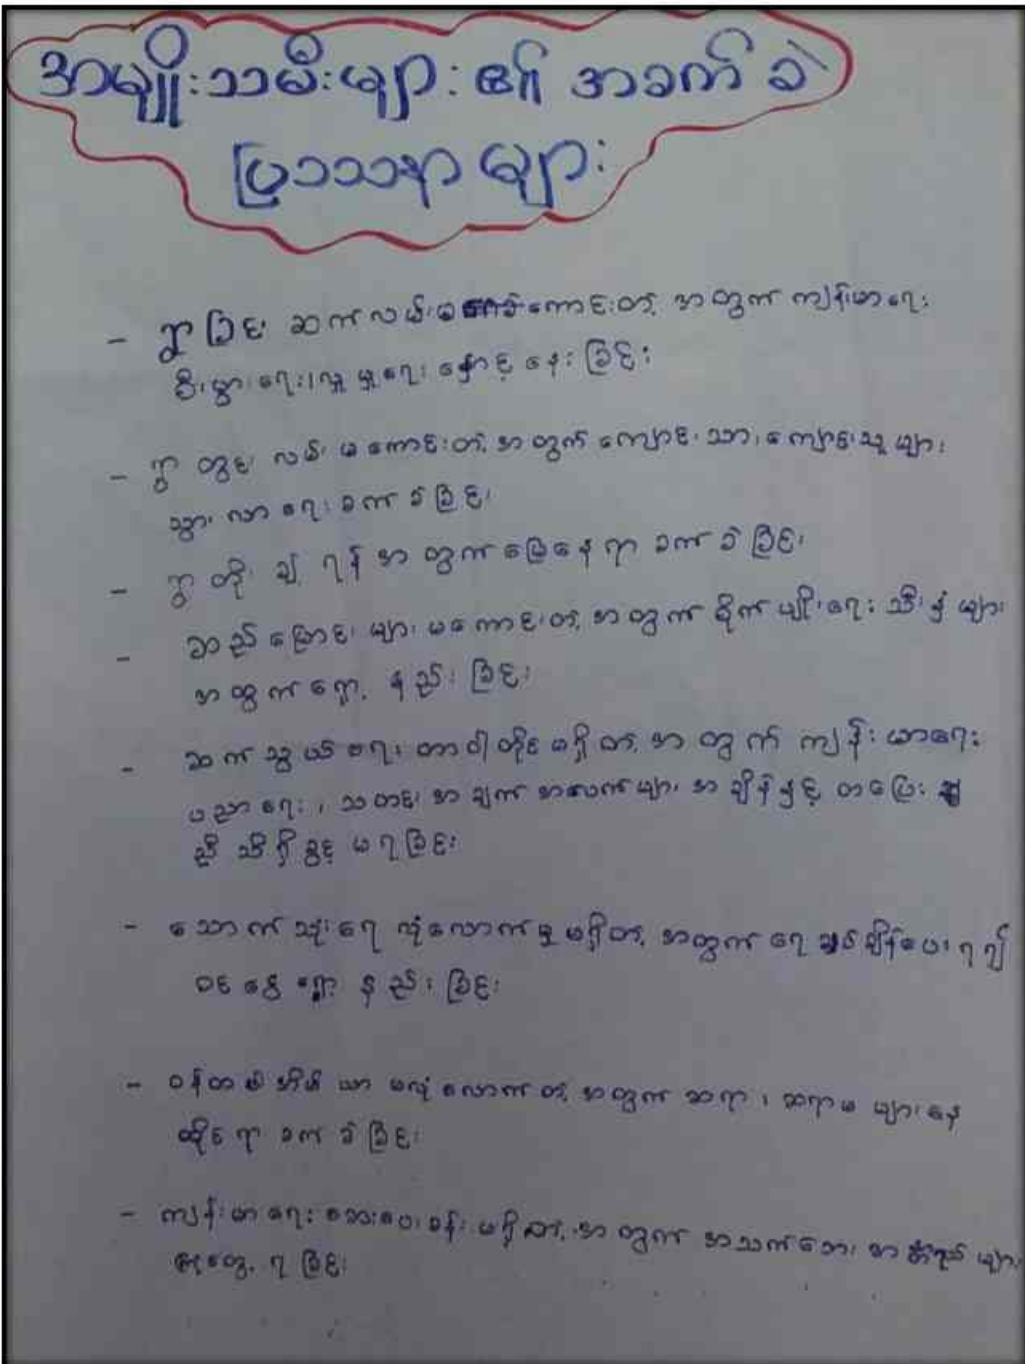 အမျိုးသမီးများ၏ အခက်ခဲ
ပြဿနာများ
- ရွာခြင်း ဆက်လမ်းမကောင်းတဲ့ အတွက် ကျန်းမာရေး
စီးပွားရေး၊လူမှုရေး နှောင့်နှေးခြင်း
- ရွာတွင်း လမ်းမကောင်းတဲ့အတွက် ကျောင်းသား၊ကျောင်းသူများ
သွားလာရေး ခက်ခဲခြင်း
- ရွာတိုးချဲ့ရန်အတွက် မြေနေရာ ခက်ခဲခြင်း
- ဆည်မြောင်းများ မကောင်းတဲ့အတွက် စိုက်ပျိုးရေး သီးနှံများ
အထွက်လျော့နည်းခြင်း
- ဆက်သွယ်ရေး တာဝါတိုင်မရှိတဲ့အတွက် ကျန်းမာရေး
ပညာရေး၊ သတင်းအချက်အလက်များ အချိန်နှင့်တပြေး
ညီ သိရှိခွင့် မရခြင်း
- သောက်သုံးရေ လုံလောက်မှုမရှိတဲ့ အတွက် ရေ ချိန်ပေးရ၍
ဝင်ငွေ လျော့နည်းခြင်း
- ဝန်ထမ်းအိမ်ယာ မလုံလောက်တဲ့အတွက် ဆရာ၊ ဆရာမများနေ
ထိုင်ရာ ခက်ခဲခြင်း
- ကျန်းမာရေး ဆေးပေးခန်း မရှိတဲ့အတွက် အသက်ဘေး အန္တရာယ်များ
တွေ့ရခြင်း